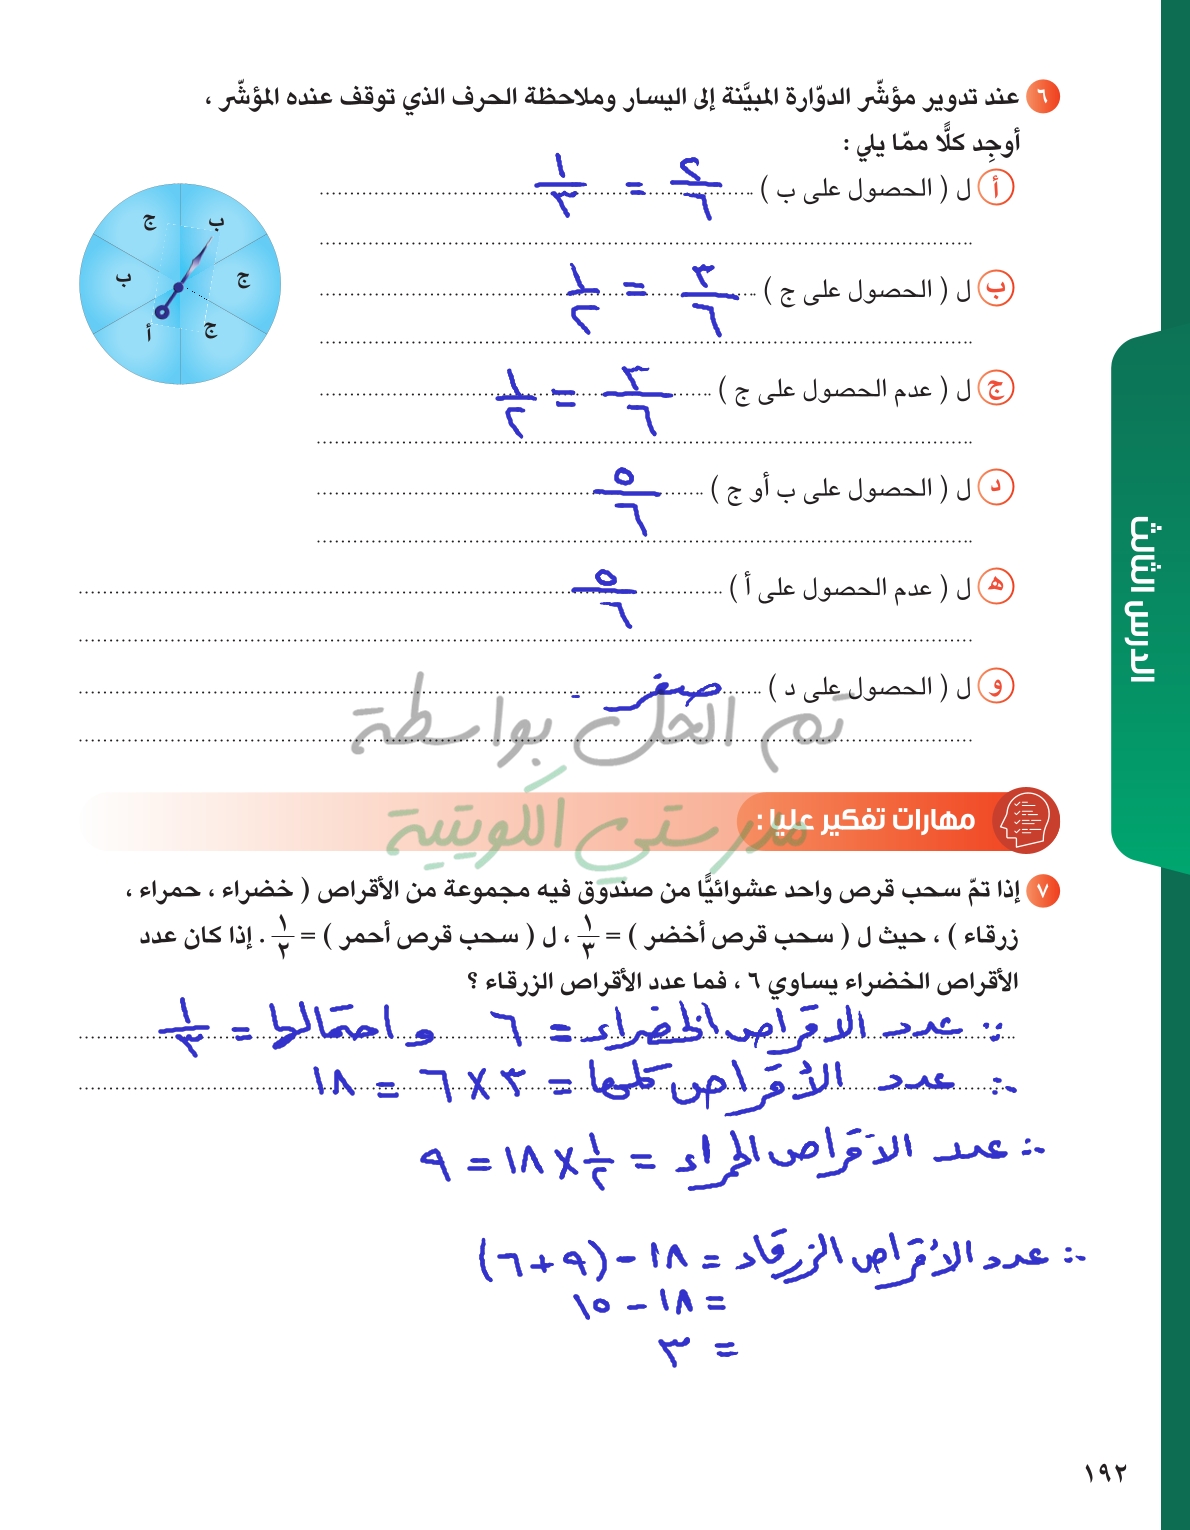 ٦ عند تدوير مؤشّر الدوّارة المبيَّنة إلى اليسار وملاحظة الحرف الذي توقف عنده المؤشّر ،
أوجِد كلًّا ممّا يلي :
أ ل ( الحصول على ب ) ٢/٦ = ١/٣
ب ل ( الحصول على ج ) ٣/٦ = ١/٢
ج ل ( عدم الحصول على ج ) ٣/٦ = ١/٢
د ل ( الحصول على ب أو ج ) ٥/٦
هـ ل ( عدم الحصول على أ ) ٥/٦
و ل ( الحصول على د ) صفر
ب
ج
ج
أ
ب
ج
تم الحل بواسطة
مدرستي الكويتية
مهارات تفكير عليا :
٧ إذا تمّ سحب قرص واحد عشوائيًّا من صندوق فيه مجموعة من الأقراص ( خضراء ، حمراء ،
زرقاء ) ، حيث ل ( سحب قرص أخضر ) = ١/٣ ، ل ( سحب قرص أحمر ) = ١/٢ . إذا كان عدد
الأقراص الخضراء يساوي ٦ ، فما عدد الأقراص الزرقاء ؟
∵ عدد الاقراص الخضراء = ٦ و احتمالها = ١/٣
∴ عدد الأقراص كلها = ٣ × ٦ = ١٨
∴ عدد الاقراص الحمراء = ١/٢ × ١٨ = ٩
∴ عدد الأقراص الزرقاء = ١٨ - (٩ + ٦)
= ١٨ - ١٥
= ٣
الدرس الثالث
١٩٢